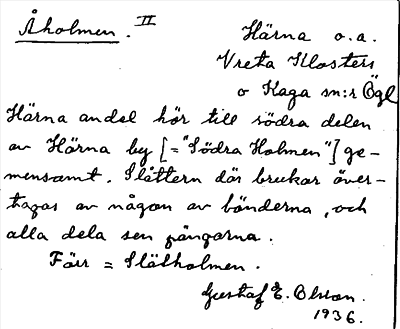 Åholmen. II Härna o.a.
Vreta Klosters
o Kaga sn:r Ögl
Härna andel hör till södra delen
av Härna by [= "Södra Holmen"] ge-
mensamt. Slåttern där brukar över-
tagas av någon av bönderna, och
alla dela sen pängarna.
Förr = Slåtholmen.
Gustaf E. Olsson.
1936.